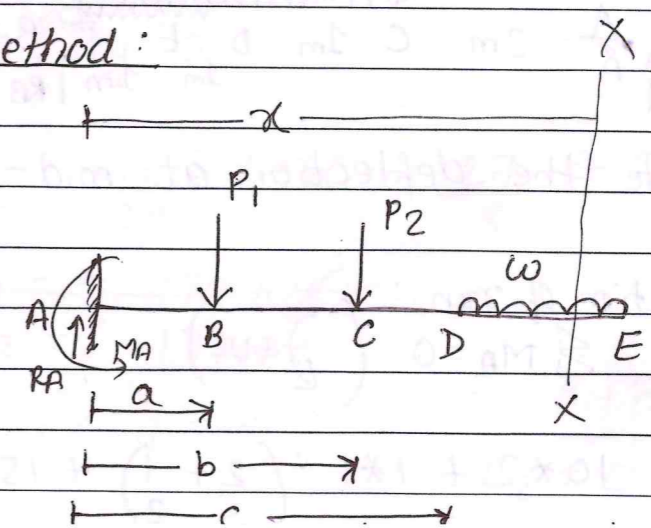 ethod :
X
x
P1
P2
ω
A
B
C
D
E
RA
MA
X
a
b
c